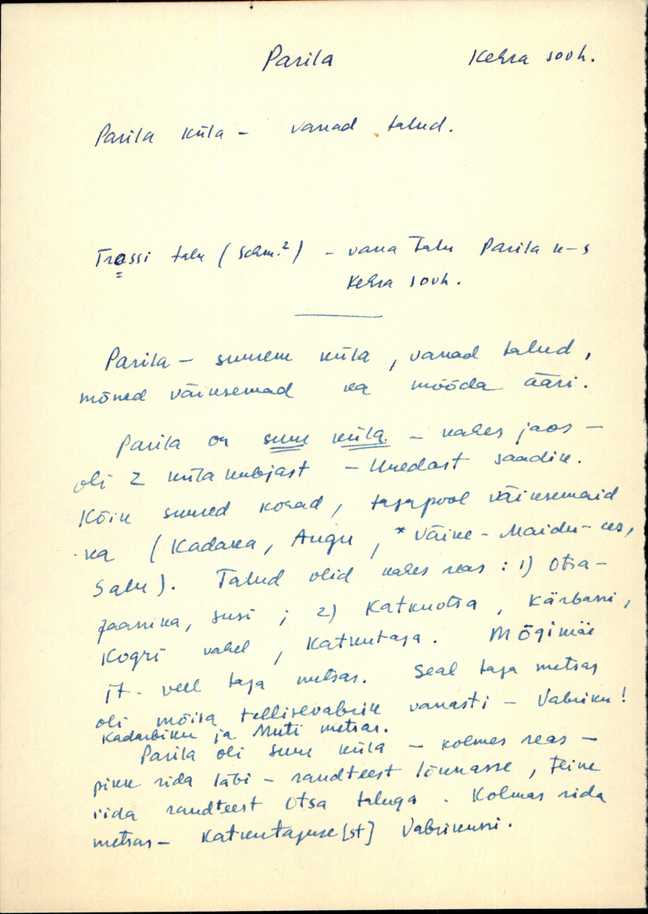 Parila Kehra sovh.
Parila küla - vanad talud.
Trassi talu (Schm.²) - vana talu Parila k-s
Kehra sovh.
Parila - suurem küla, vanad talud,
mõned väiksemad ka mööda ääri.
Parila on suur küla - kahes jaos -
oli 2 küla kubjast - Uuedast saadik.
Kõik suured kohad, tagapool väiksemaid
ka (Kadaka, Augu, * Väike-Maidu-es,
Salu). Talud olid kahes reas: 1) Otsa-
jaanika, Susi; 2) Katkuotsa, Kärbassi,
Kogri vahel, Katkutaga. Mõgimäe
it. veel taga metsas. Seal taga metsas
oli mõisa tellisevabrik vanasti - Vabriku!
Kadarbiku ja Muti metsas.
Parila oli suur küla - kolmes reas -
pikk rida läbi - randteest lõunasse, teine
rida randteest Otsa taluga. Kolmas rida
metsas - Katkutaguse[st] Vabrikuni.